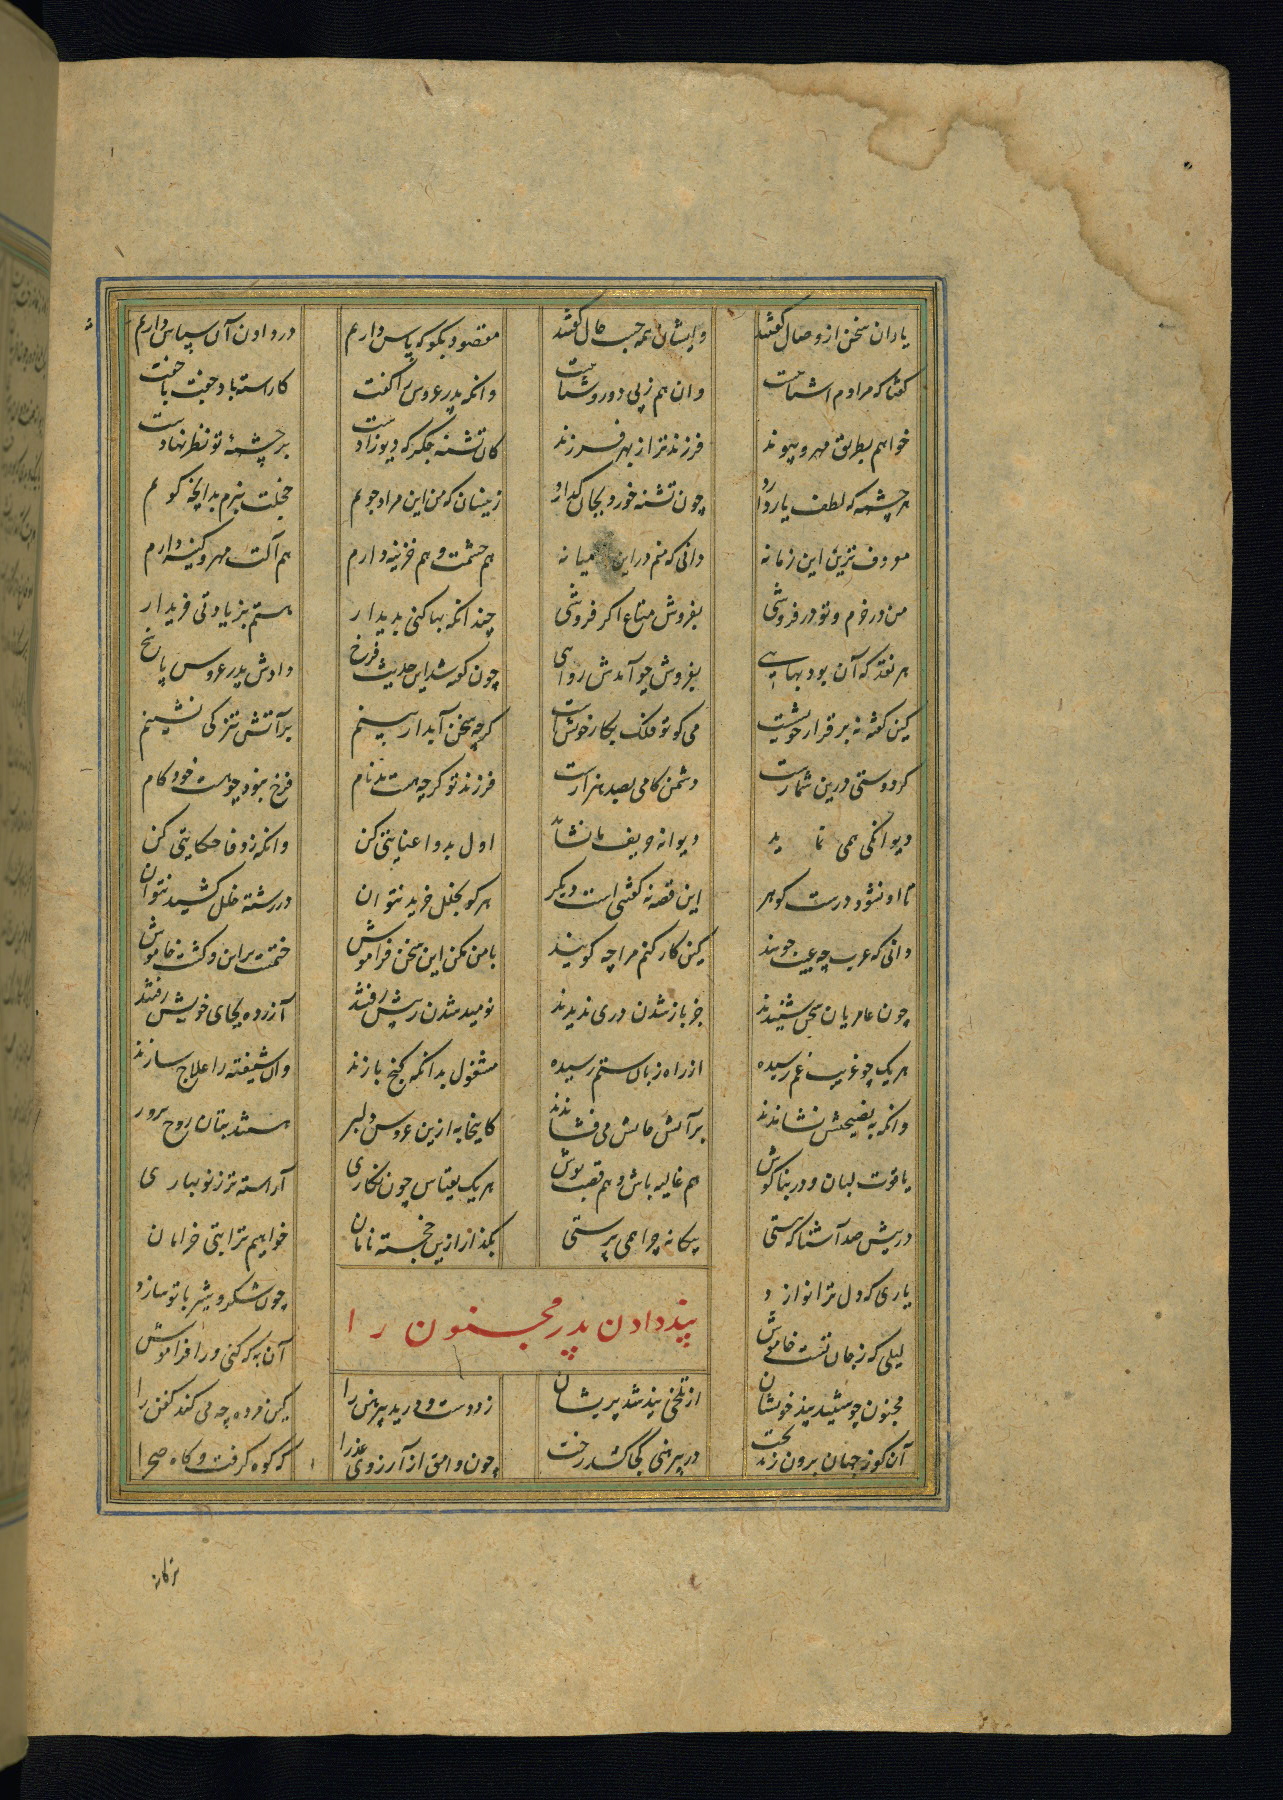 یاران سخن از وصال گفتند وایشان همه حسب حال گفتند مقصود بگو که پاس داریم در دادن آن سپاس داریم
گفتا که مرادم آشنائیست وان هم ز پی دو روشنائیست وانگه پدر عروس را گفت کاراسته باد جفت با جفت
خواهم بطریق مهر و پیوند فرزند ترا ز بهر فرزند کان تشنه جگر که دیو زادست بر چشمهٔ تو نظر نهادست
هر چشمه که لطف یار دارد چون تشنه خورد بجان گدارد زینسان که من این مراد جویم خجلت نبرم بدانچه گویم
معروف ترین این زمانه دانی که منم در این میانه هم حشمت و هم خزینه دارم هم آلت مهر و کینه دارم
من در خرم و تو در فروشی بفروش متاع اگر فروشی چندانکه بها کنی پدیدار هستم بزیادتی خریدار
هر نقد که آن بود بهایی بفروش چو آمدش روایی چون گفته شد این حدیث فرخ دادش پدر عروس پاسخ
کین گفته نه برقرار خویشست می گو تو فلک بکار خویشست گرچه سخن آبدار بینم بر آتش تیز کی نشینم
گر دوستی درین شمارست دشمن کامی بصد هزارست فرزند تو گرچه هست بدنام فرخ نبود چو هست خودکام
دیوانگی همی نماید دیوانه حریف ما نشاید اول بدوا عنایتی کن وانگه ز وفا حکایتی کن
تا او نشود درست گوهر این قصه نه گفتنی است دیگر هر گو بخلل خرید نتوان در رشته خلل کشید نتوان
دانی که عرب چه عیب جویند کین کار کنم مرا چه گویند با من مکن این سخن فراموش ختمست براین و گشت خاموش
چون عامریان سخن شنیدند جز باز شدن دری ندیدند نومید شدن ز پیش رفتند آزرده بجای خویش رفتند
هر یک چو غریب غم رسیده از راه زبان ستم رسیده مشغول بدانکه گنج بازند وان شیفته را علاج سازند
وانگه به نصیحتش نشاندند بر آتش خارش می فشاندند کاینجا به ازین عروس دلبر هستند بتان روح پرور
یاقوت لبان و در بناگوش هم غالیه پاش و هم قصب پوش هر یک بقیاس چون نگاری آراسته تر ز نوبهاری
در پیش صد آشنا که هستی بیگانه چرا همی پرستی بگذار ازین خجسته نامان خواهیم ترا بتی خرامان
یاری که دل ترا نوازد چون شکر و شیر با تو سازد
لیلی که ز جان تست خاموش آن به که کنی ورا فراموش
پند دادن پدر مجنون را
مجنون چو شنید پند خویشان از تلخی پند شد پریشان زد دست و درید پیرهن را کین مرده چه می کند کفن را
آن کو ز جهان برون زند تخت در پیرهنی کجا کشد رخت چون وامق از آرزوی عذرا گه کوه گرفت و گاه صحرا
ترکانه